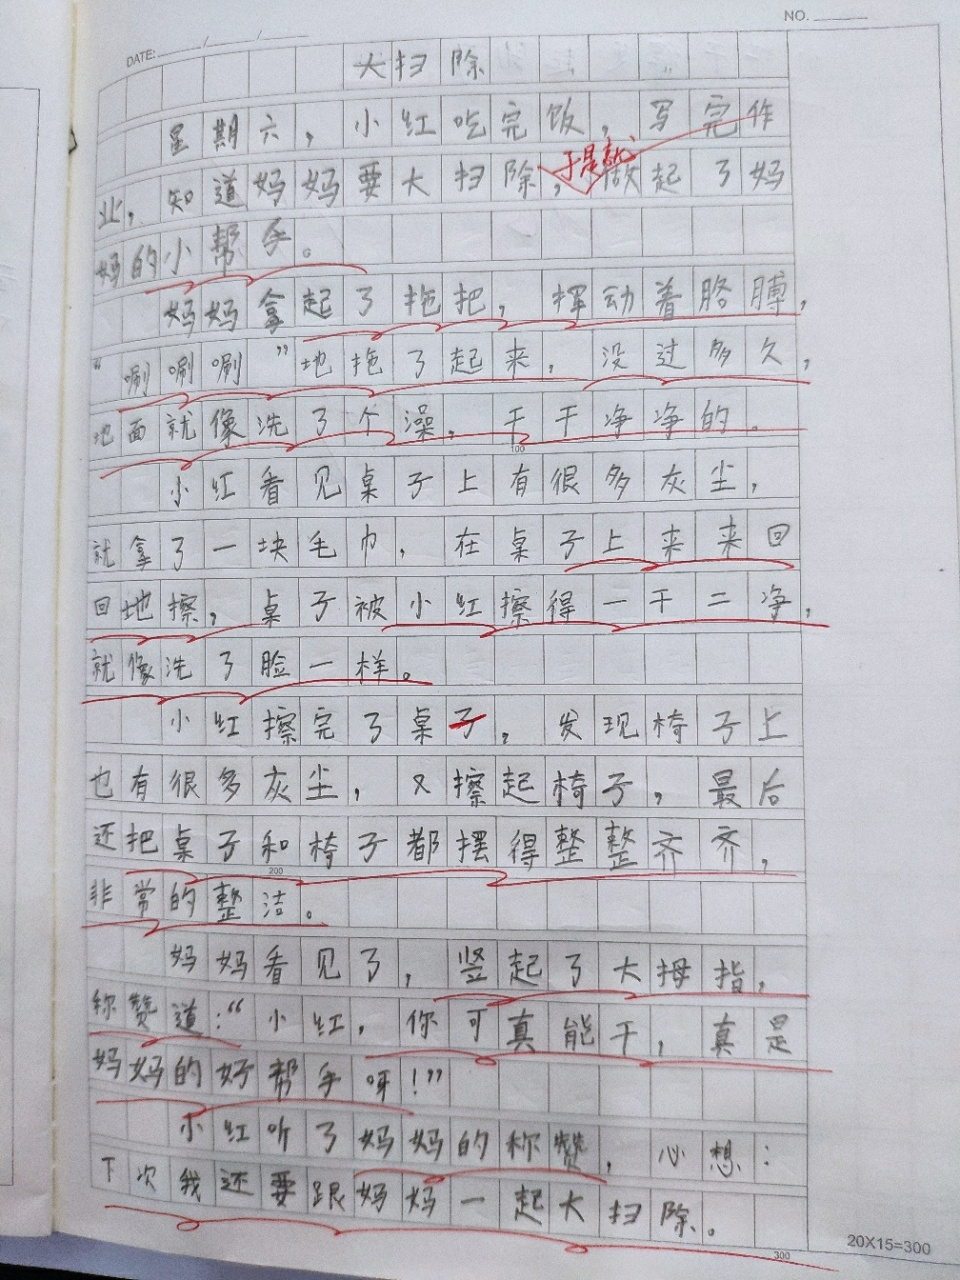 NO.
DATE: / /
大扫除
星期六，小红吃完饭，写完作
业，知道妈妈要大扫除，于是就做起了妈
妈的小帮手。
妈妈拿起了拖把，挥动着胳膊，
“唰唰唰”地拖了起来，没过多久，
地面就像洗了个澡，干干净净的。
100
小红看见桌子上有很多灰尘，
就拿了一块毛巾，在桌子上来来回
回地擦，桌子被小红擦得一干二净，
就像洗了脸一样。
小红擦完了桌子，发现椅子上
也有很多灰尘，又擦起椅子，最后
还把桌子和椅子都摆得整整齐齐，
200
非常的整洁。
妈妈看见了，竖起了大拇指，
称赞道：“小红，你可真能干，真是
妈妈的好帮手呀！”
小红听了妈妈的称赞，心想：
下次我还要跟妈妈一起大扫除。
300
20X15=300